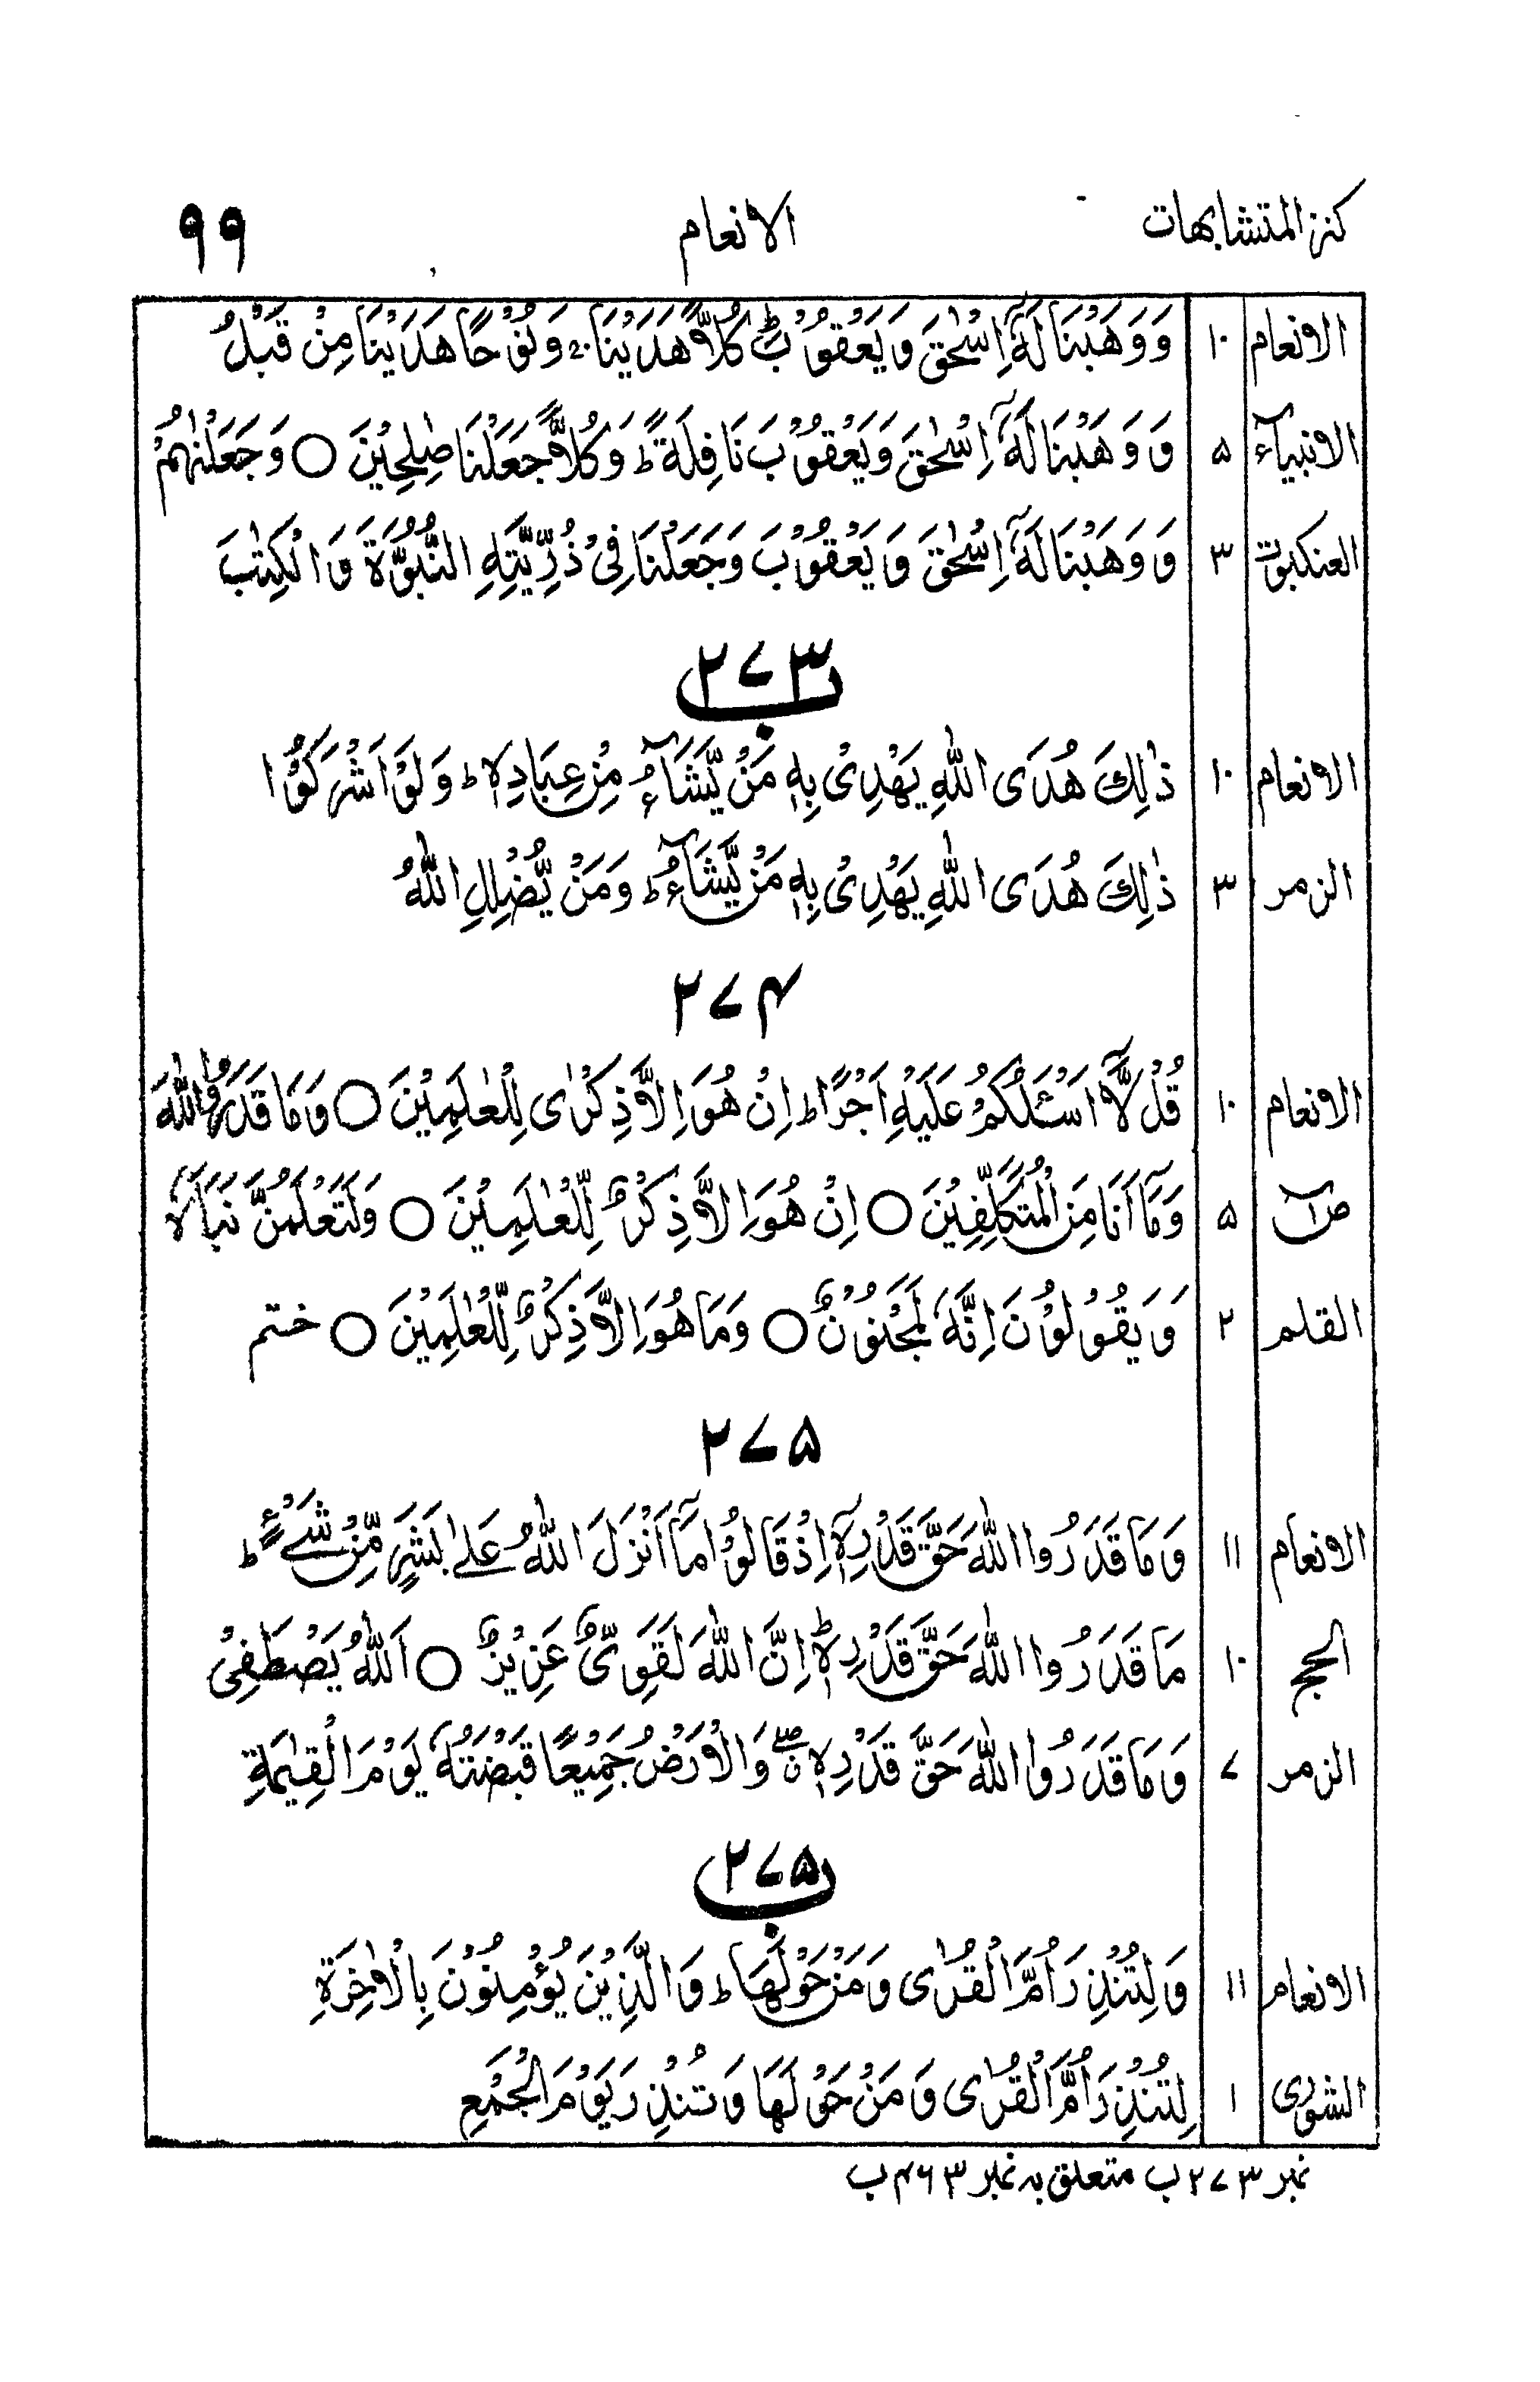 كنز المتشابهات الانعام ۹۹
الانعام ۱۰ وَوَهَبْنَا لَهٗٓ اِسْحٰقَ وَيَعْقُوْبَ ؕ كُلًّا هَدَيْنَا ۚ وَنُوْحًا هَدَيْنَا مِنْ قَبْلُ
الانبيآء ۵ وَوَهَبْنَا لَهٗٓ اِسْحٰقَ وَيَعْقُوْبَ نَافِلَةً ؕ وَكُلًّا جَعَلْنَا صٰلِحِيْنَ ○ وَجَعَلْنٰهُمْ
العنكبوت ۳ وَوَهَبْنَا لَهٗٓ اِسْحٰقَ وَيَعْقُوْبَ وَجَعَلْنَا فِيْ ذُرِّيَّتِهِ النُّبُوَّةَ وَالْكِتٰبَ
۲۷۳ب
الانعام ۱۰ ذٰلِكَ هُدَى اللّٰهِ يَهْدِيْ بِهٖ مَنْ يَّشَآءُ مِنْ عِبَادِهٖ ؕ وَلَوْ اَشْرَكُوْا
الزمر ۳ ذٰلِكَ هُدَى اللّٰهِ يَهْدِيْ بِهٖ مَنْ يَّشَآءُ ؕ وَمَنْ يُّضْلِلِ اللّٰهُ
۲۷۴
الانعام ۱۰ قُلْ لَّآ اَسْـَٔلُكُمْ عَلَيْهِ اَجْرًا ؕ اِنْ هُوَ اِلَّا ذِكْرٰى لِلْعٰلَمِيْنَ ○ وَمَا قَدَرُوا اللّٰهَ
صٓ ۵ وَمَآ اَنَا مِنَ الْمُتَكَلِّفِيْنَ ○ اِنْ هُوَ اِلَّا ذِكْرٌ لِّلْعٰلَمِيْنَ ○ وَلَتَعْلَمُنَّ نَبَاَهٗ
القلم ۲ وَيَقُوْلُوْنَ اِنَّهٗ لَمَجْنُوْنٌ ○ وَمَا هُوَ اِلَّا ذِكْرٌ لِّلْعٰلَمِيْنَ ○ ختم
۲۷۵
الانعام ۱۱ وَمَا قَدَرُوا اللّٰهَ حَقَّ قَدْرِهٖٓ اِذْ قَالُوْا مَآ اَنْزَلَ اللّٰهُ عَلٰى بَشَرٍ مِّنْ شَيْءٍ ؕ
الحج ۱۰ مَا قَدَرُوا اللّٰهَ حَقَّ قَدْرِهٖ ؕ اِنَّ اللّٰهَ لَقَوِيٌّ عَزِيْزٌ ○ اَللّٰهُ يَصْطَفِيْ
الزمر ۷ وَمَا قَدَرُوا اللّٰهَ حَقَّ قَدْرِهٖ ۖ وَالْاَرْضُ جَمِيْعًا قَبْضَتُهٗ يَوْمَ الْقِيٰمَةِ
۲۷۵ب
الانعام ۱۱ وَلِتُنْذِرَ اُمَّ الْقُرٰى وَمَنْ حَوْلَهَا ؕ وَالَّذِيْنَ يُؤْمِنُوْنَ بِالْاٰخِرَةِ
الشورى ۱ لِتُنْذِرَ اُمَّ الْقُرٰى وَمَنْ حَوْلَهَا وَتُنْذِرَ يَوْمَ الْجَمْعِ
نمبر ۲۷۳ب متعلق بہ نمبر ۴۶۳ب